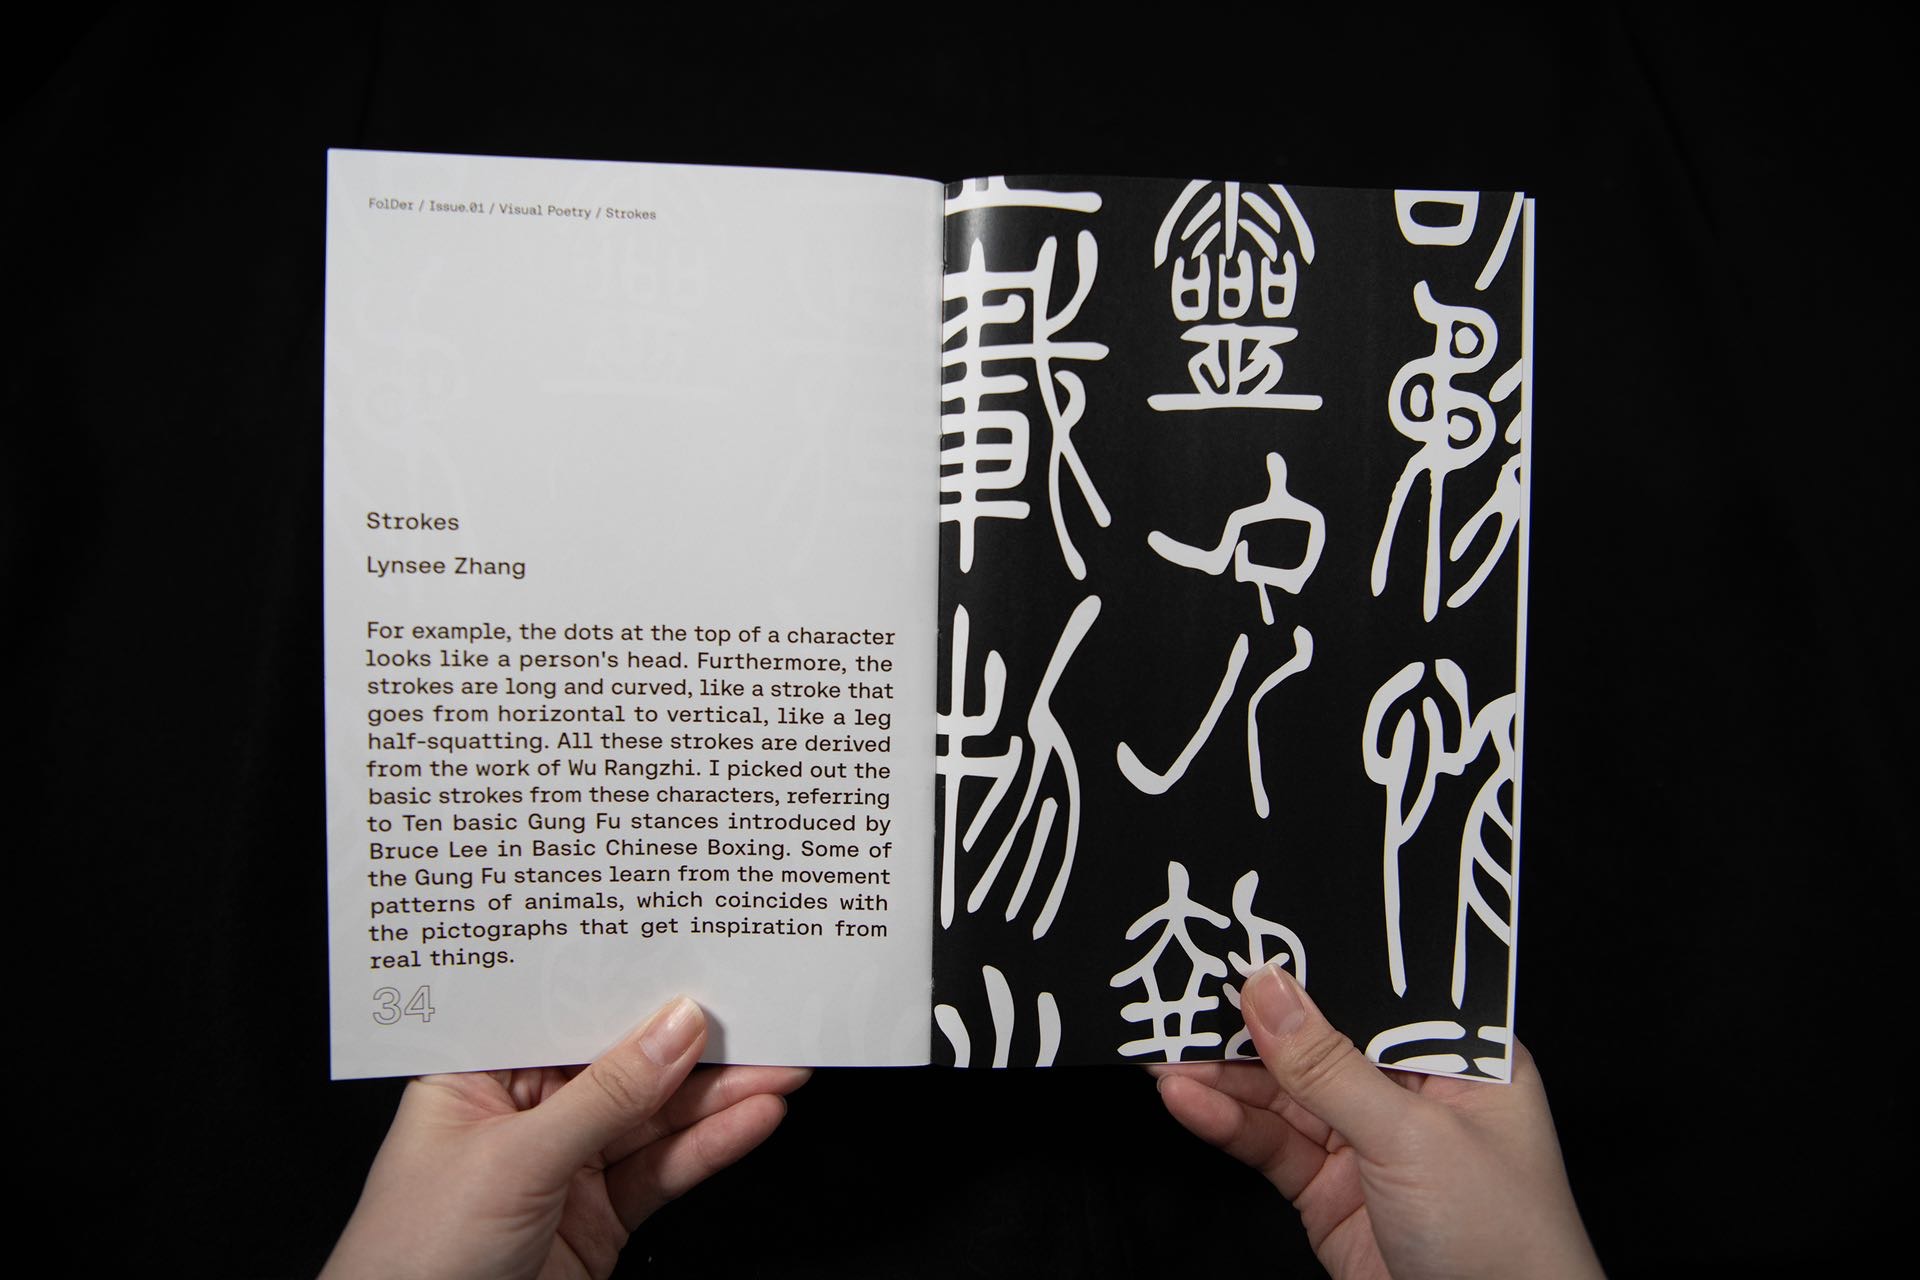 FolDer / Issue.01 / Visual Poetry / Strokes
Strokes
Lynsee Zhang
For example, the dots at the top of a character
looks like a person's head. Furthermore, the
strokes are long and curved, like a stroke that
goes from horizontal to vertical, like a leg
half-squatting. All these strokes are derived
from the work of Wu Rangzhi. I picked out the
basic strokes from these characters, referring
to Ten basic Gung Fu stances introduced by
Bruce Lee in Basic Chinese Boxing. Some of
the Gung Fu stances learn from the movement
patterns of animals, which coincides with
the pictographs that get inspiration from
real things.
34
載
物
靈